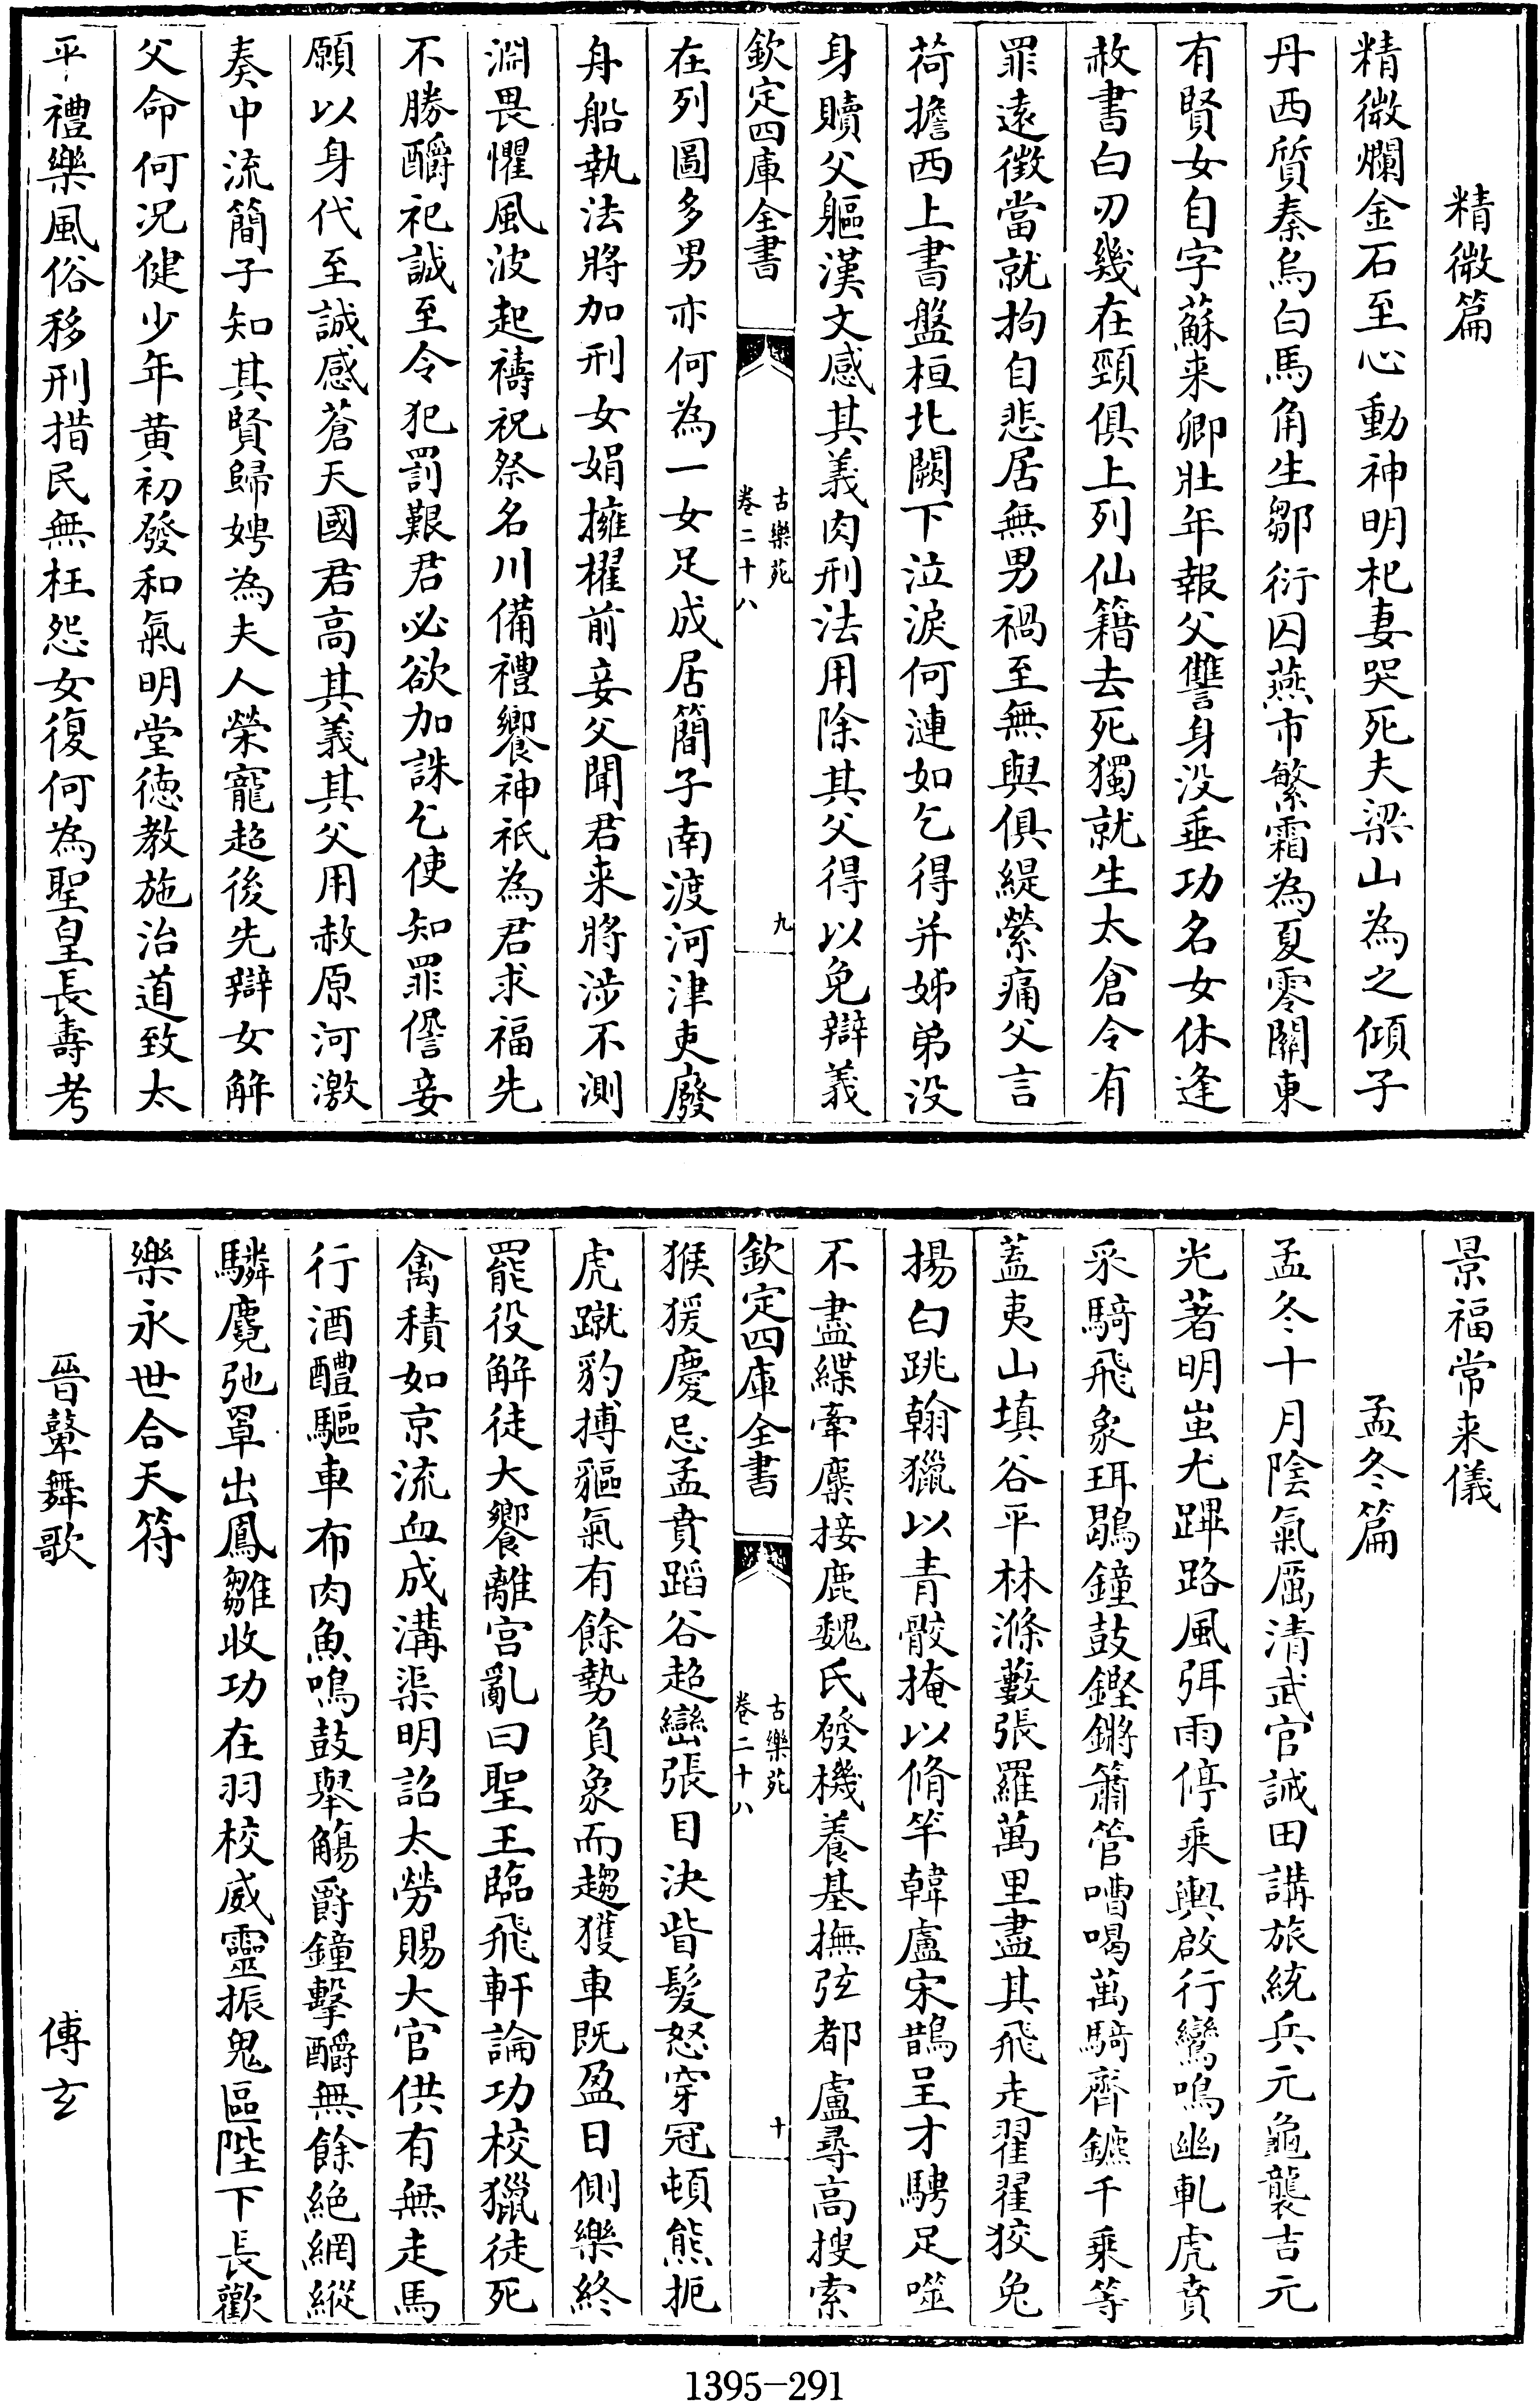 精微篇
精微爛金石至心動神明杞妻哭死夫梁山為之傾子
丹西質秦烏白馬角生鄒衍囚燕市繁霜為夏零關東
有賢女自字蘇来卿壯年報父讐身没垂功名女休逢
赦書白刃幾在頸俱上列仙籍去死獨就生太倉令有
罪遠徵當就拘自悲居無男禍至無與俱緹縈痛父言
荷擔西上書盤桓北闕下泣淚何漣如乞得并姊弟没
身贖父軀漢文感其義肉刑法用除其父得以免辯義
欽定四庫全書
古樂苑
卷二十八
九
在列圖多男亦何為一女足成居簡子南渡河津吏廢
舟船執法將加刑女娟擁櫂前妾父聞君来將涉不測
淵畏懼風波起禱祝祭名川備禮饗神祇為君求福先
不勝釂祀誠至令犯罰艱君必欲加誅乞使知罪諐妾
願以身代至誠感蒼天國君高其義其父用赦原河激
奏中流簡子知其賢歸娉為夫人榮寵超後先辯女解
父命何況健少年黄初發和氣明堂徳教施治道致太
平禮樂風俗移刑措民無枉怨女復何為聖皇長壽考
景福常来儀
孟冬篇
孟冬十月陰氣厲清武官誡田講旅統兵元龜襲吉元
光著明蚩尤蹕路風弭雨停乘輿啟行鸞鳴幽軋虎賁
采騎飛象珥鶡鐘鼓鏗鏘簫管嘈喝萬騎齊鑣千乘等
蓋夷山填谷平林滌藪張羅萬里盡其飛走翟翟狡兔
揚白跳翰獵以青骹掩以脩竿韓盧宋鵲呈才騁足噬
不盡緤牽麋掎鹿魏氏發機養基撫弦都盧尋高搜索
欽定四庫全書
古樂苑
卷二十八
十
猴猨慶忌孟賁蹈谷超巒張目決眥髮怒穿冠頓熊扼
虎蹴豹搏貙氣有餘勢負象而趨獲車既盈日側樂終
罷役解徒大饗離宫亂曰聖王臨飛軒論功校獵徒死
禽積如京流血成溝渠明詔大勞賜大官供有無走馬
行酒醴驅車布肉魚鳴鼓舉觴爵鐘擊釂無餘絶網縱
驎麑弛罩出鳳雛收功在羽校威靈振鬼區陛下長歡
樂永世合天符
晉鼙舞歌
傅玄
1395-291